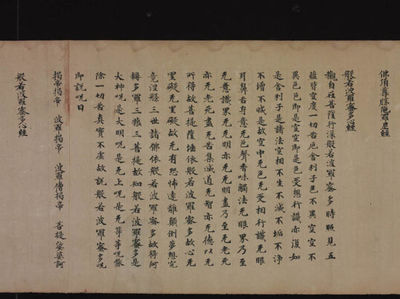 佛頂尊勝陁羅尼經
般若波羅蜜多心經
觀自在菩薩行深般若波羅蜜多時照見五
蘊皆空度一切苦厄舍利子色不異空空不
異色色即是空空即是色受想行識亦復如
是舍利子是諸法空相不生不滅不垢不淨
不增不減是故空中无色无受想行識无眼
耳鼻舌身意无色聲香味觸法无眼界乃至
无意識界无无明亦无无明盡乃至无老死
亦无老死盡无苦集滅道无智亦无得以无
所得故菩提薩埵依般若波羅蜜多故心无
罣礙无罣礙故无有恐怖遠離顛倒夢想究
竟涅槃三世諸佛依般若波羅蜜多故得阿
耨多羅三藐三菩提故知般若波羅蜜多是
大神呪是大明呪是无上呪是无等等呪能
除一切苦真實不虛故說般若波羅蜜多呪
即說呪曰
揭帝揭帝 波羅揭帝 波羅僧揭帝 菩提娑婆訶
般若波羅蜜多心經